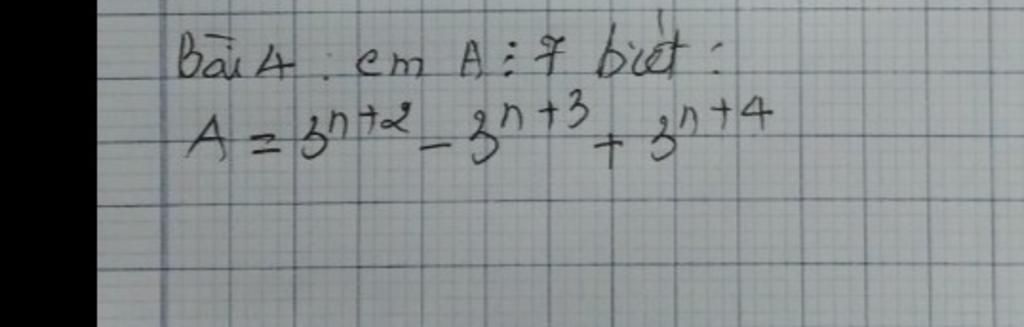 Bài 4 : cm A ⋮ 7 biết :
A = 3ⁿ⁺² - 3ⁿ⁺³ + 3ⁿ⁺⁴